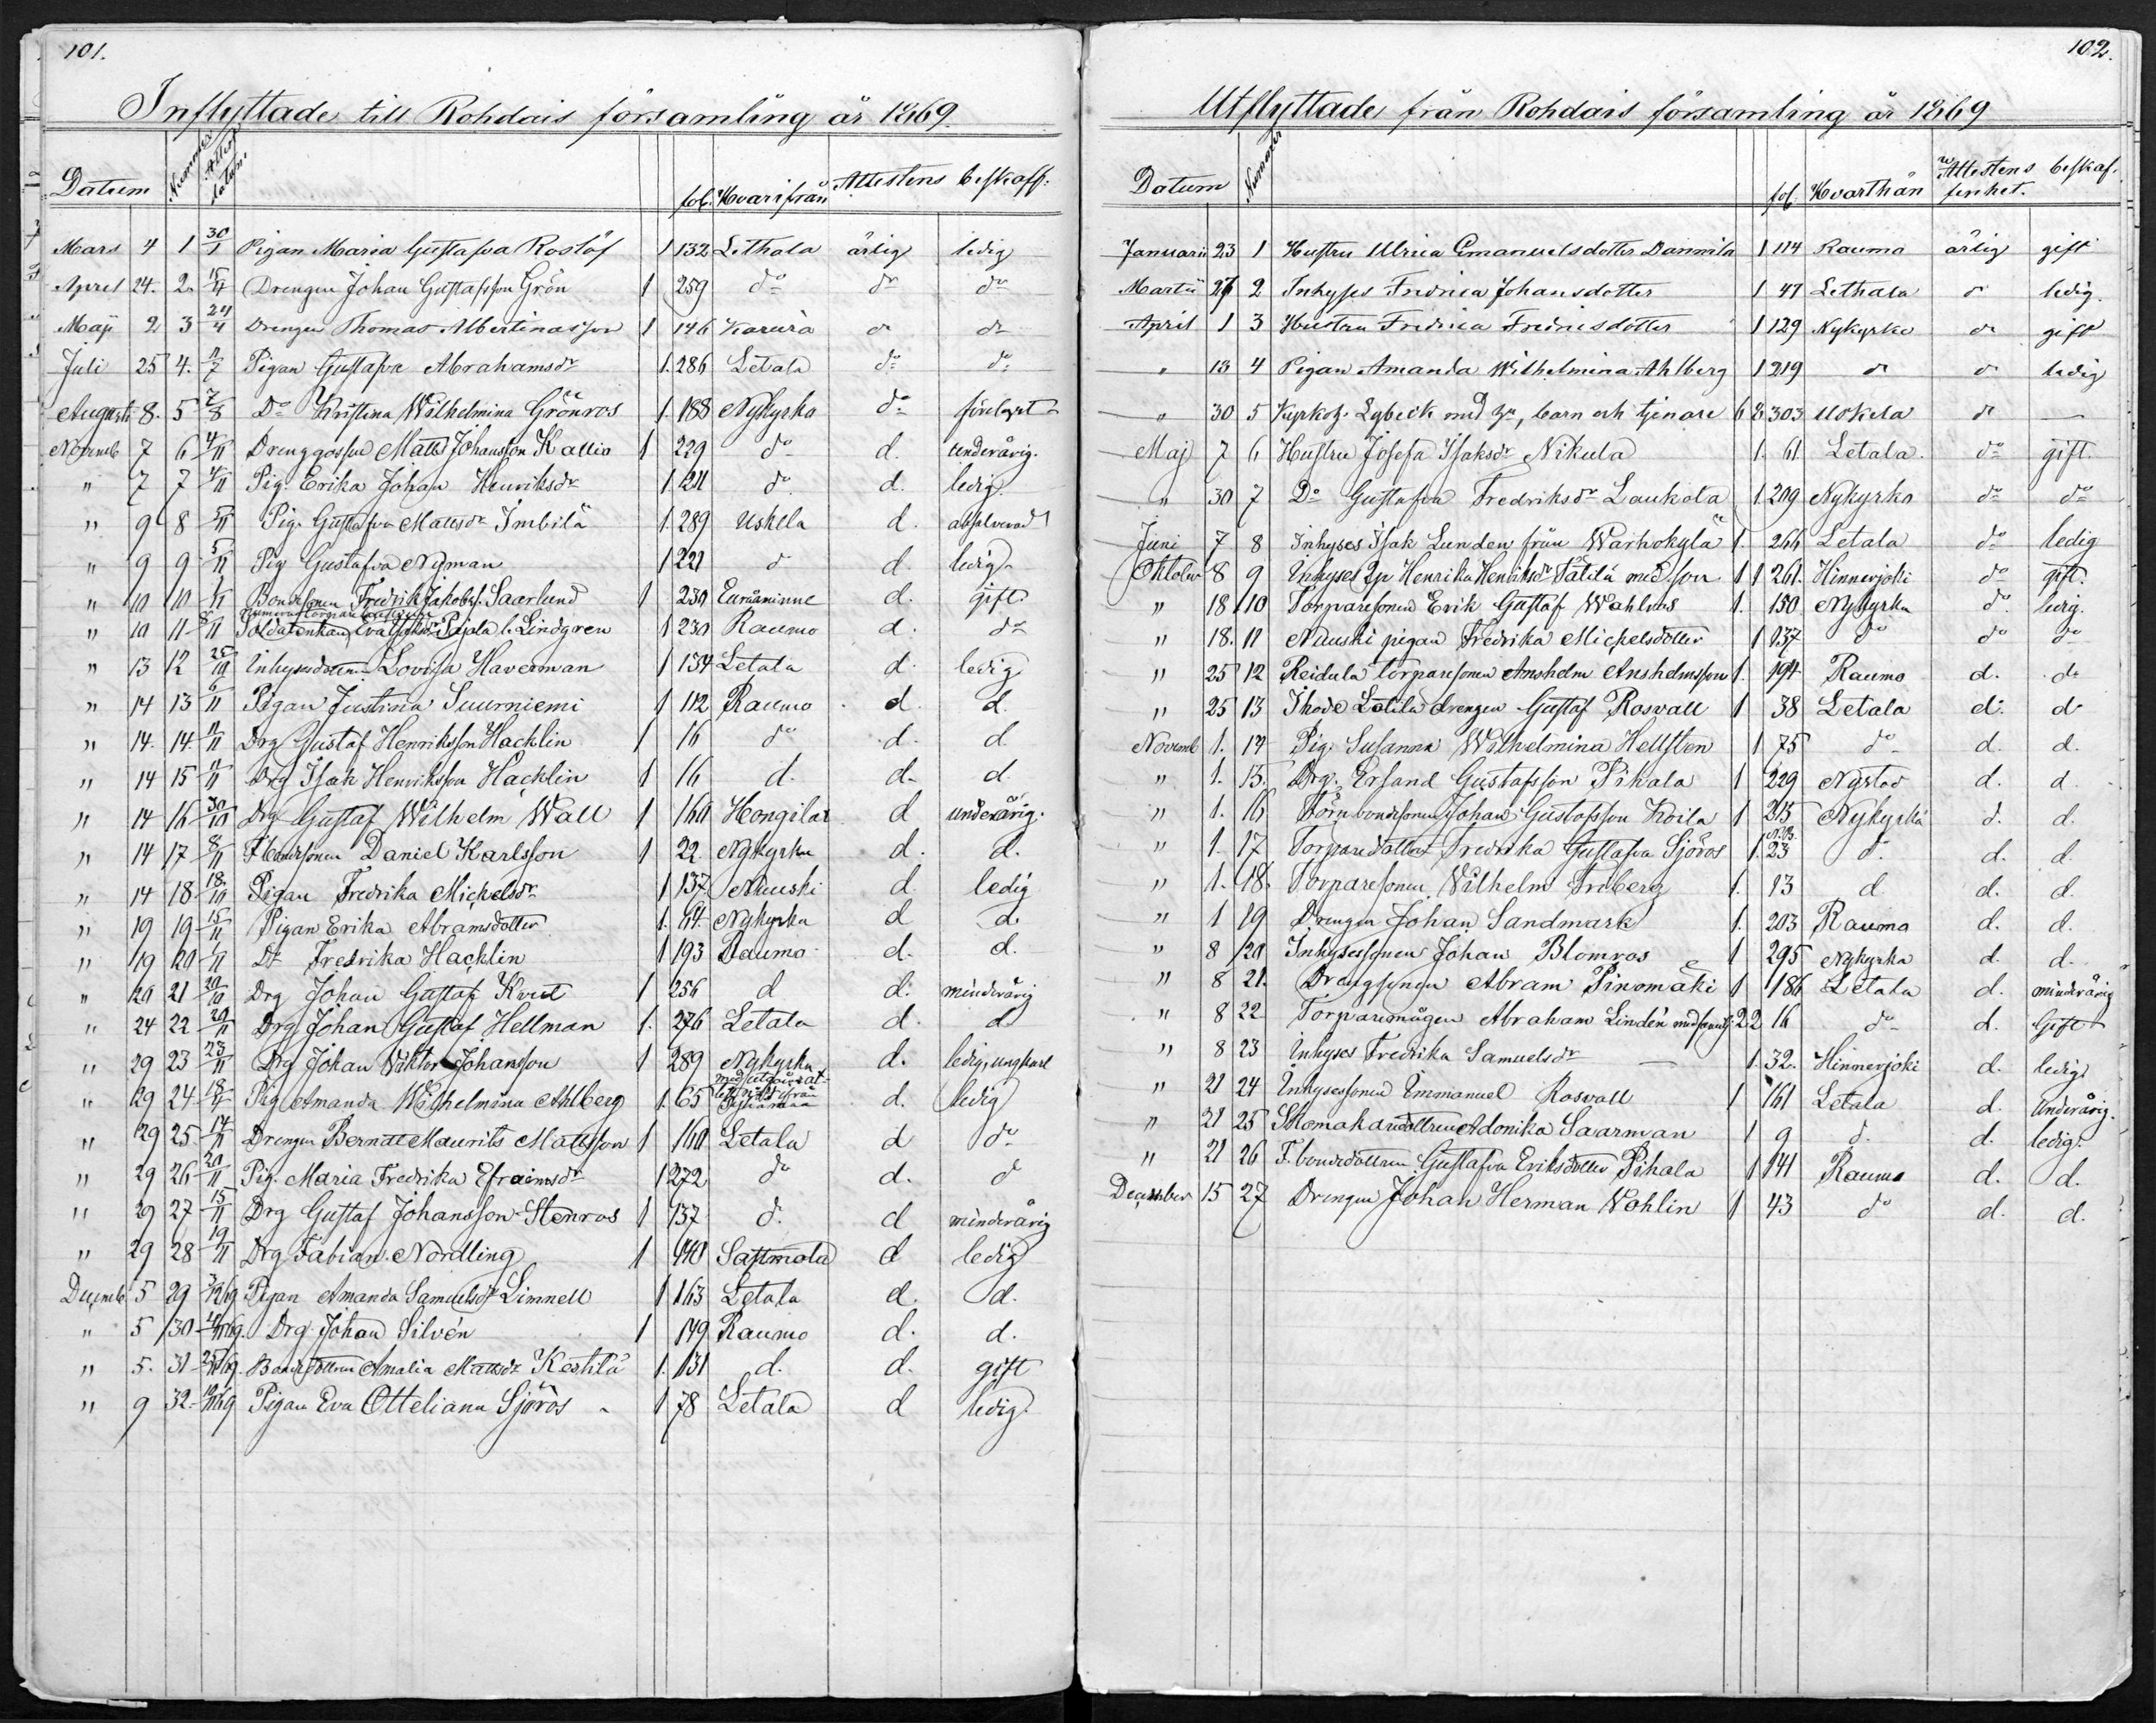 101.
Inflyttade till Rohdais församling år 1869.
Datum Nummer Attest datum. fol. Hvarifrån Attestens beskaff:
Mars 4 1 30/1 Pigan Maria Gustafva Roslöf 1 132 Lethala ärlig ledig
April 24. 2. 15/4 Drengen Johan Gustafsson Grön 1 259 do do do
Maji 2 3 24/4 Drengen Thomas Albertinasson 1 146 do do
Juli 25 4. 11/7 Pigan Gustafva Abrahamsdr 1. 286 Letala do do
Augusti 8. 5 7/8 Do Kristina Wilhelmina Grönros 1. 188 Nykyrko do
Novemb 7 6 4/11 Drenggossen Matts Johansson Kallio 1 229 do d. underårig.
" 7 7 4/11 Pig. Erika Johan Henriksdr 1 121 do d. ledig.
" 9 8 5/11 Pig. Gustafva Mattsdr Imbilä 1. 289 Uskela d. absolverad
" 9 9 5/11 Pig Gustafva Nyman 1 221 d d. ledig
" 10 10 Bondesonen Fredrik Jakobss. Saarlund 1 230 Euraåminne d. gift.
" 10 11 8/11 Soldatenkan Eva Pajala l. Lindgren 1 230 Raumo d. do
" 13 12 25/10 Inhysesdottern Lovisa Haverman 1 154 Letala d. ledig
" 14 13 6/11 Pigan Justina Suurniemi 1 112 Raumo d. d.
" 14. 14. 11/11 Drg Gustaf Henriksson Hacklin 1 16 do d. d.
" 14 15 11/11 Drg Isak Henriksson Hacklin 1 16 d. d. d.
" 14 16 30/10 Drg Gustaf Wilhelm Wall 1 160 Hongilax d underårig.
" 14 17 8/11 F. bondesonen Daniel Karlsson 1 22. Nykyrka d. d.
" 14 18 18/10 Pigan Fredrika Mickelsdr 1 137 Nauski d. ledig
" 19 19 15/11 Pigan Erika Abramsdotter 1. 44. Nykyrka d d.
" 19 20 Do Fredrika Hacklin 1 193 Raumo d. d.
" 20 21 20/10 Drg Johan Gustaf Kvist 1 256 d d. minderårig
" 24 22 20/11 Drg Johan Gustaf Hellman 1. 276 Letala d. d
" 29 23 23/11 Drg Johan Viktor Johansson 1 289 Nykyrka d. ledig, ungkarl
" 29 24 Pig Amanda Wilhelmina Ahlberg 1. 65 d. ledig
" 29 25 14/11 Drengen Bernat Maurits Mattsson 1 160 Letala d do
" 29 26 20/11 Pig. Maria Fredrika Efraimsdr 1 272 do d. d
" 29 27 15/11 Drg Gustaf Johansson Stenros 1 137 d. d minderårig
" 29 28 19/11 Drg Fabian Nordling 1 140 Sastmola d ledig
Decemb 5 29 Pigan Amanda Samuelsdr Limnell 1 163 Letala d. d.
" 5 30 Drg. Johan Silvén 1 149 Raumo d. d.
" 5. 31 Bondedottren Amalia Mattsdr Kestilä 1. 131 d. d. gift
" 9 32. Pigan Eva Otteliana Sjöros 1 78 Letala d ledig.
102.
Utflyttade från Rohdais församling år 1869
Datum Nummer fol. Hvarthän Attestens beskaffenhet.
Januarii 23 1 Hustru Ulrica Emanuelsdotter Danmila 1 114 Raumo ärlig gift
Martii 27 2 Inhyses Fredrica Johansdotter 1 47 Lethala d ledig.
April 1 3 Hustru Fredrica Fredricsdotter 1 129 Nykyrko do gift
" 13 4 Pigan Amanda Wilhelmina Ahlberg 1 219 do d ledig
" 30 5 Kyrkoh. Lybeck med fru, barn och tjenare 6 8 303 Uskela do —
Maj 7 6 Hustru Josefa Isaksdr Nikula 1. 61 Letala. do gift.
" 30 7 Do Gustafva Fredriksdr Laukola 1. 209 Nykyrko do do
Juni 7 8 Inhyses Isak Lunden från Warhokylä 1. 266 Letala do ledig
Oktober 8 9 Inhyses Henrika Henriksdr Tätilä med son 1 1 261. Hinnerjoki do gift.
" 18 10 Torparesonen Erik Gustaf Wahlros 1. 150 Nykyrka d. ledig.
" 18. 11 Nauski pigan Fredrika Mickelsdotter 1 137 do do do
" 25 12 Reidula torparesonen Anshelm Anshelmsson 1. 194 Raumo d. do
" 25 13 Ihode Lalila drengen Gustaf Rosvall 1 38 Letala d. d
Novemb 1. 14 Pig. Susanna Wilhelmina Hellsten 1 75 do d. d.
" 1. 15. Drg. Ersand Gustafsson Pikala 1 229 Nystad d. d.
" 1. 16 bondesonen Johan Gustafsson Koila 1 315 Nykyrka d. d.
" 1. 17 Torparedottern Fredrika Gustafva Sjöros 1. N.B. 23 d. d. d.
" 1. 18. Torparesonen Wilhelm Friberg 1. 13 d d. d.
" 1 19 Drengen Johan Sandmark 1. 203 Raumo d. d.
" 8 20 Inhysessonen Johan Blomros 1 295 Nykyrka d. d.
" 8 21. Drengsonen Abram Pinomäki 1 186 Letala d. minderårig
" 8 22 Torparemågen Abraham Lindén med familj 2 2 16 do d. Gift
" 8 23 Inhyses Fredrika Samuelsdr 1. 32. Hinnerjoki d. ledig
" 21 24 Inhysessonen Emmanuel Rosvall 1 161 Letala d. Underårig.
" 21 25 Skomakaredottren Adonika Saarman 1 9 d. d. ledig.
" 21 26 F. bondedottern Gustafva Eriksdotter Pihala 1 141 Raumo d. d.
December 15 27 Drengen Johan Herman Wohlin 1 43 do d. d.